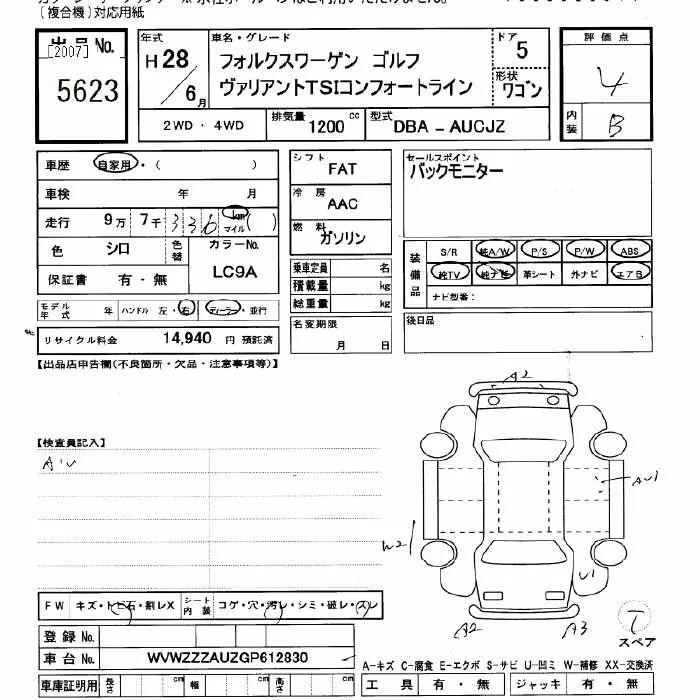 (複合機)対応用紙
出品No.
[2007]
5623
年式
H28
6月
車名・グレード
フォルクスワーゲン ゴルフ
ヴァリアントTSIコンフォートライン
ドア
5
形状
ワゴン
評価点
4
内装
B
2WD・4WD
排気量
1200 cc
型式
DBA - AUCJZ
車歴 自家用・( )
車検 年 月
走行 9万 7千 336 km マイル ( )
色 シロ
色替
カラーNo.
LC9A
保証書 有・無
モデル年式 年 ハンドル 左・右 ディーラー・並行
リサイクル料金 14,940 円 預託済
シフト
FAT
冷房
AAC
燃料
ガソリン
乗車定員 名
積載量 kg
総重量 kg
名変期限
月 日
セールスポイント
バックモニター
装備品
S/R 純A/W P/S P/W ABS
純TV 純ナビ 革シート 外ナビ エアB
ナビ型番:
後日品
【出品店申告欄(不良箇所・欠品・注意事項等)】
【検査員記入】
A・U
A2
AU1
W2
U1
A2
A3
スペア
FW キズ・トビ石・割レX
シート内装 コゲ・穴・汚レ・シミ・破レ・スレ
登録No.
車台No. WVWZZZAUZGP612830
車庫証明用 長さ cm 幅 cm 高さ cm
A-キズ C-腐食 E-エクボ S-サビ U-凹ミ W-補修 XX-交換済
工具 有・無 ジャッキ 有・無